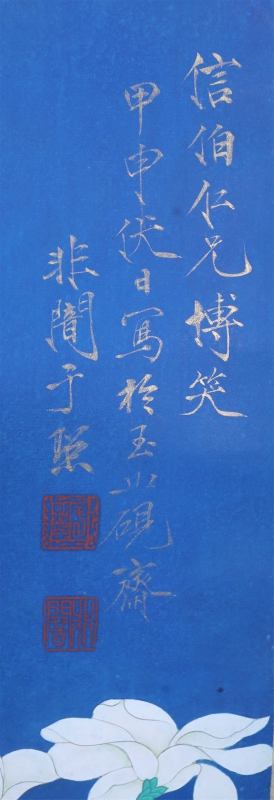 信伯仁兄博笑
甲申伏日寫於玉山硯齋
非闇于照